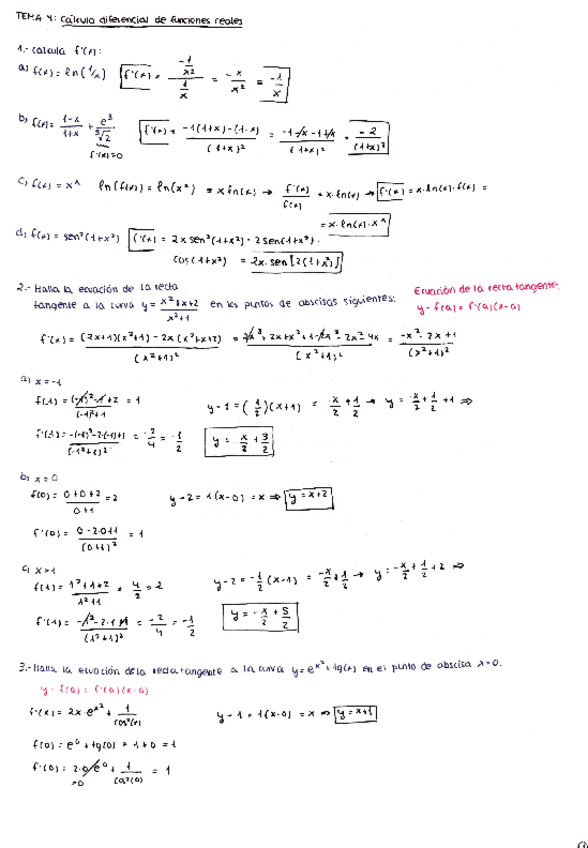 TEMA 4: Cálculo diferencial de funciones reales
1.- Calcula f'(x):
a) f(x) = ln(1/x) f'(x) = (-1/x²)/(1/x) = -x/x² = -1/x
b) f(x) = (1-x)/(1+x) + e³/⁵√2 f'(x) = (-1(1+x)-(1-x))/(1+x)² = (-1-x-1+x)/(1+x)² = -2/(1+x)²
f'(x)=0
c) f(x) = xˣ ln(f(x)) = ln(xˣ) = x ln(x) → f'(x)/f(x) = x·ln(x) → f'(x) = x·ln(x)·f(x) =
= x·ln(x)·xˣ
d) f(x) = sen²(1+x²) f'(x) = 2x sen²(1+x²) · 2sen(1+x²) ·
cos(1+x²) = 2x·sen[2(1+x²)]
2.- Halla la ecuación de la recta
tangente a la curva y = (x²+x+2)/(x²+1) en los puntos de abscisas siguientes:
Ecuación de la recta tangente:
y - f(a) = f'(a)(x-a)
f'(x) = ((2x+1)(x²+1) - 2x(x²+x+2))/(x²+1)² = (2x³+2x+x²+1-2x³-2x²-4x)/(x²+1)² = (-x²-2x+1)/(x²+1)²
a) x = -1
f(-1) = ((-1)²-1+2)/((-1)²+1) = 1 y-1 = (1/2)(x+1) = x/2 + 1/2 → y = x/2 + 1/2 + 1 ⇒
f'(-1) = (-(-1)²-2·(-1)+1)/(-1²+1)² = 2/4 = 1/2 y = x/2 + 3/2
b) x = 0
f(0) = (0+0+2)/(0+1) = 2 y-2 = 1(x-0) = x ⇒ y = x+2
f'(0) = (0-2·0+1)/(0+1)² = 1
c) x = 1
f(1) = (1²+1+2)/(1²+1) = 4/2 = 2 y-2 = -1/2(x-1) = -x/2 + 1/2 → y = -x/2 + 1/2 + 2 ⇒
f'(1) = (-1²-2·1+1)/(1²+1)² = -2/4 = -1/2 y = -x/2 + 5/2
3.- Halla la ecuación de la recta tangente a la curva y = eˣ² + tg(x) en el punto de abscisa x=0.
y - f(a) = f'(a)(x-a)
f'(x) = 2x·eˣ² + 1/cos²(x) y-1 = 1(x-0) = x ⇒ y = x+1
f(0) = e⁰ + tg(0) = 1+0 = 1
f'(0) = 2·0·e⁰ + 1/cos²(0) = 1
=0